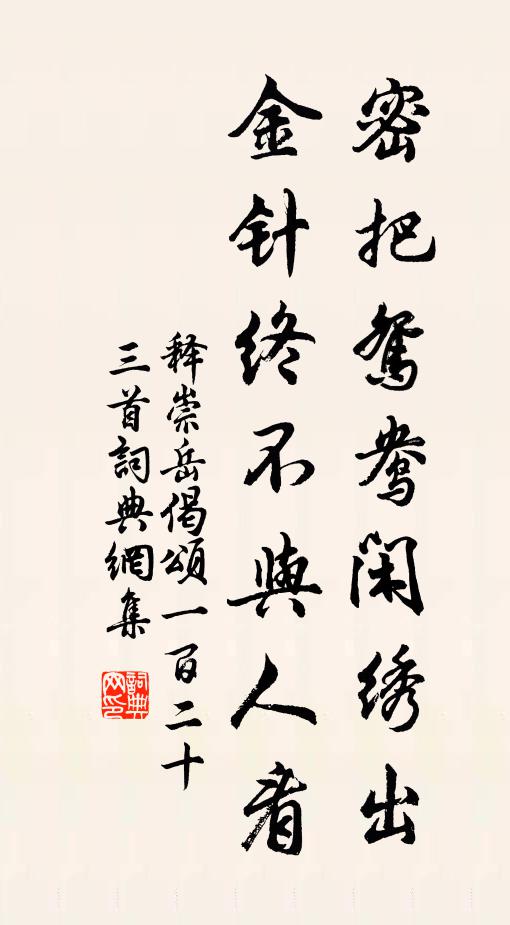 密把鸳鸯闲绣出
金针终不與人看
释崇岳偈頌一百二十
三首詞典網集
詞典网印